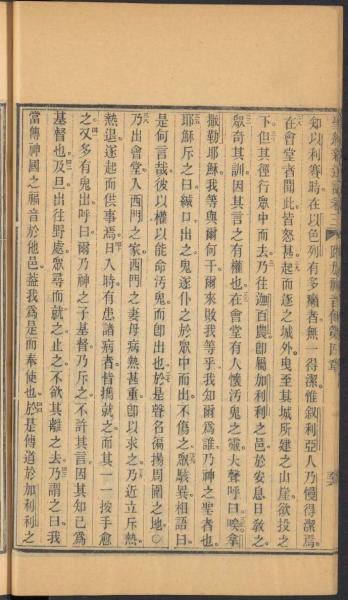 知以利賽時在以色列有多癩者無一得潔惟敘利亞人乃慢得潔焉
在會堂者聞此皆怒甚起而逐之城外曳至其城所建之山崖欲投之
下但其徑行眾中而去乃往迦百農卽屬加利利之邑於安息日敎之
眾奇其訓因其言之有權也在會堂有人懷汚鬼之靈大聲呼曰唉拿
撒勒耶穌我等與爾何干爾來敗我等乎我知爾爲誰乃神之聖者也
耶穌斥之曰緘口出之鬼遂仆之於眾中而出不傷之眾駭異相語曰
是何言哉彼以權以能命汚鬼而卽出也於是聲名徧揚周圍之地○
乃出會堂入西門之家西門之妻母病熱甚重卽以求之乃近立斥熱
熱退遂起而供事焉日入時有患諸病者皆攜就之而其一一按手愈
之又多有鬼出呼曰爾乃神之子基督乃斥之不許其言因其知己爲
基督也及旦出往野處眾尋而就之止之不欲其離之去乃謂之曰我
當傳神國之福音於他邑蓋我爲是而奉使也於是傳道於加利利之